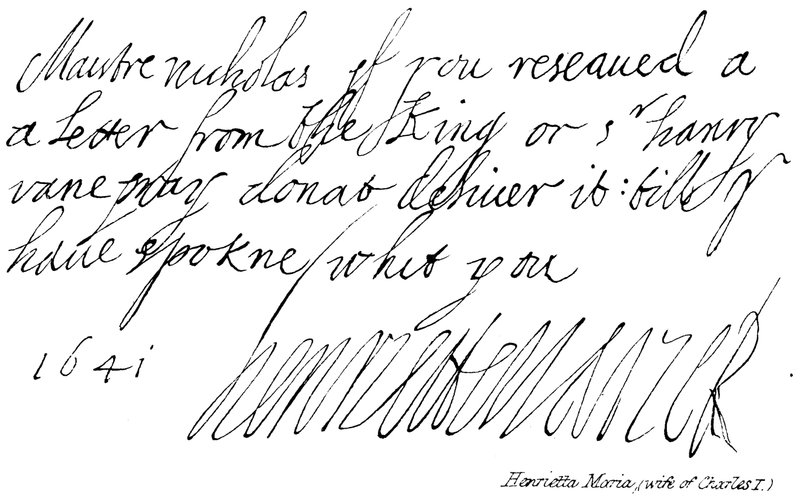 Maistre nicholas if you reseaued a
a letter from the King or sr hanry
vane pray donat deliuer it: till y
haue spokne whit you
1641
Henriette Marie R
Henrietta Maria, (wife of Charles I.)